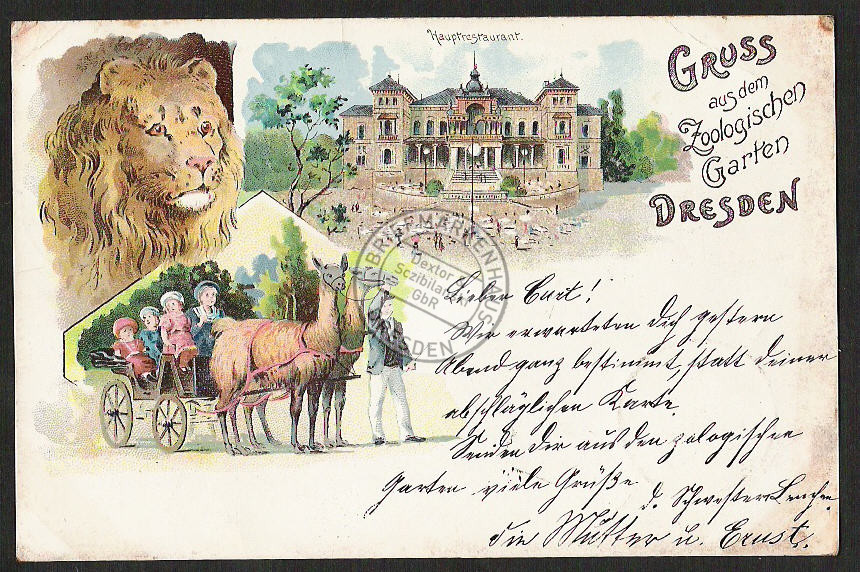 Hauptrestaurant.
GRUSS
aus dem
Zoologischen
Garten
DRESDEN
BRIEFMARKENHAUS
Dextor
Sczibilan
GbR
DRESDEN
Lieber Curt!
Wir erwarteten dich gestern
Abend ganz bestimmt, statt deiner
abschläglichen Karte.
Senden dir aus den zologischen
Garten viele Grüße
d. Schwester Lenchen,
die Mutter u. Ernst.